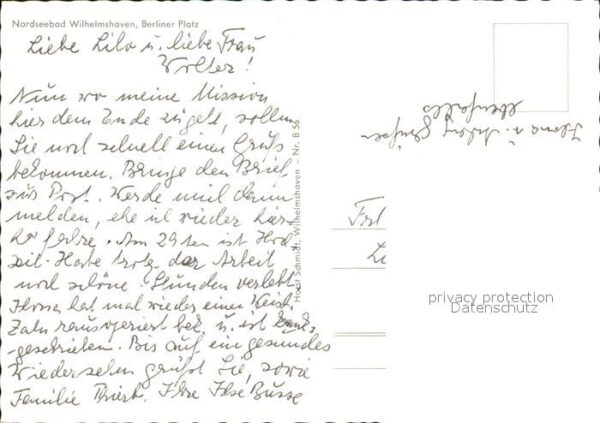 Nordseebad Wilhelmshaven, Berliner Platz
Liebe Lilo u. liebe Frau
Wolter!
Nun wo meine Mission
hier dem Ende zugeht, sollen
Sie noch schnell einen Gruß
bekommen. Bringe den Brief
zur Post. Werde mich dann
melden, ehe ich wieder hier-
her fahre. Am 29ten ist Hoch-
zeit. Habe trotz der Arbeit
noch schöne Stunden verlebt.
hat mal wieder einen Weish.
Zahn bek. u. ist krank-
geschrieben. Bis auf ein gesundes
Wiedersehn grüßt Sie, sowie
Familie Ihre Ilse Busse
Horst Schmidt, Wilhelmshaven - Nr. B 56
ebenfalls
Frl
privacy protection
Datenschutz